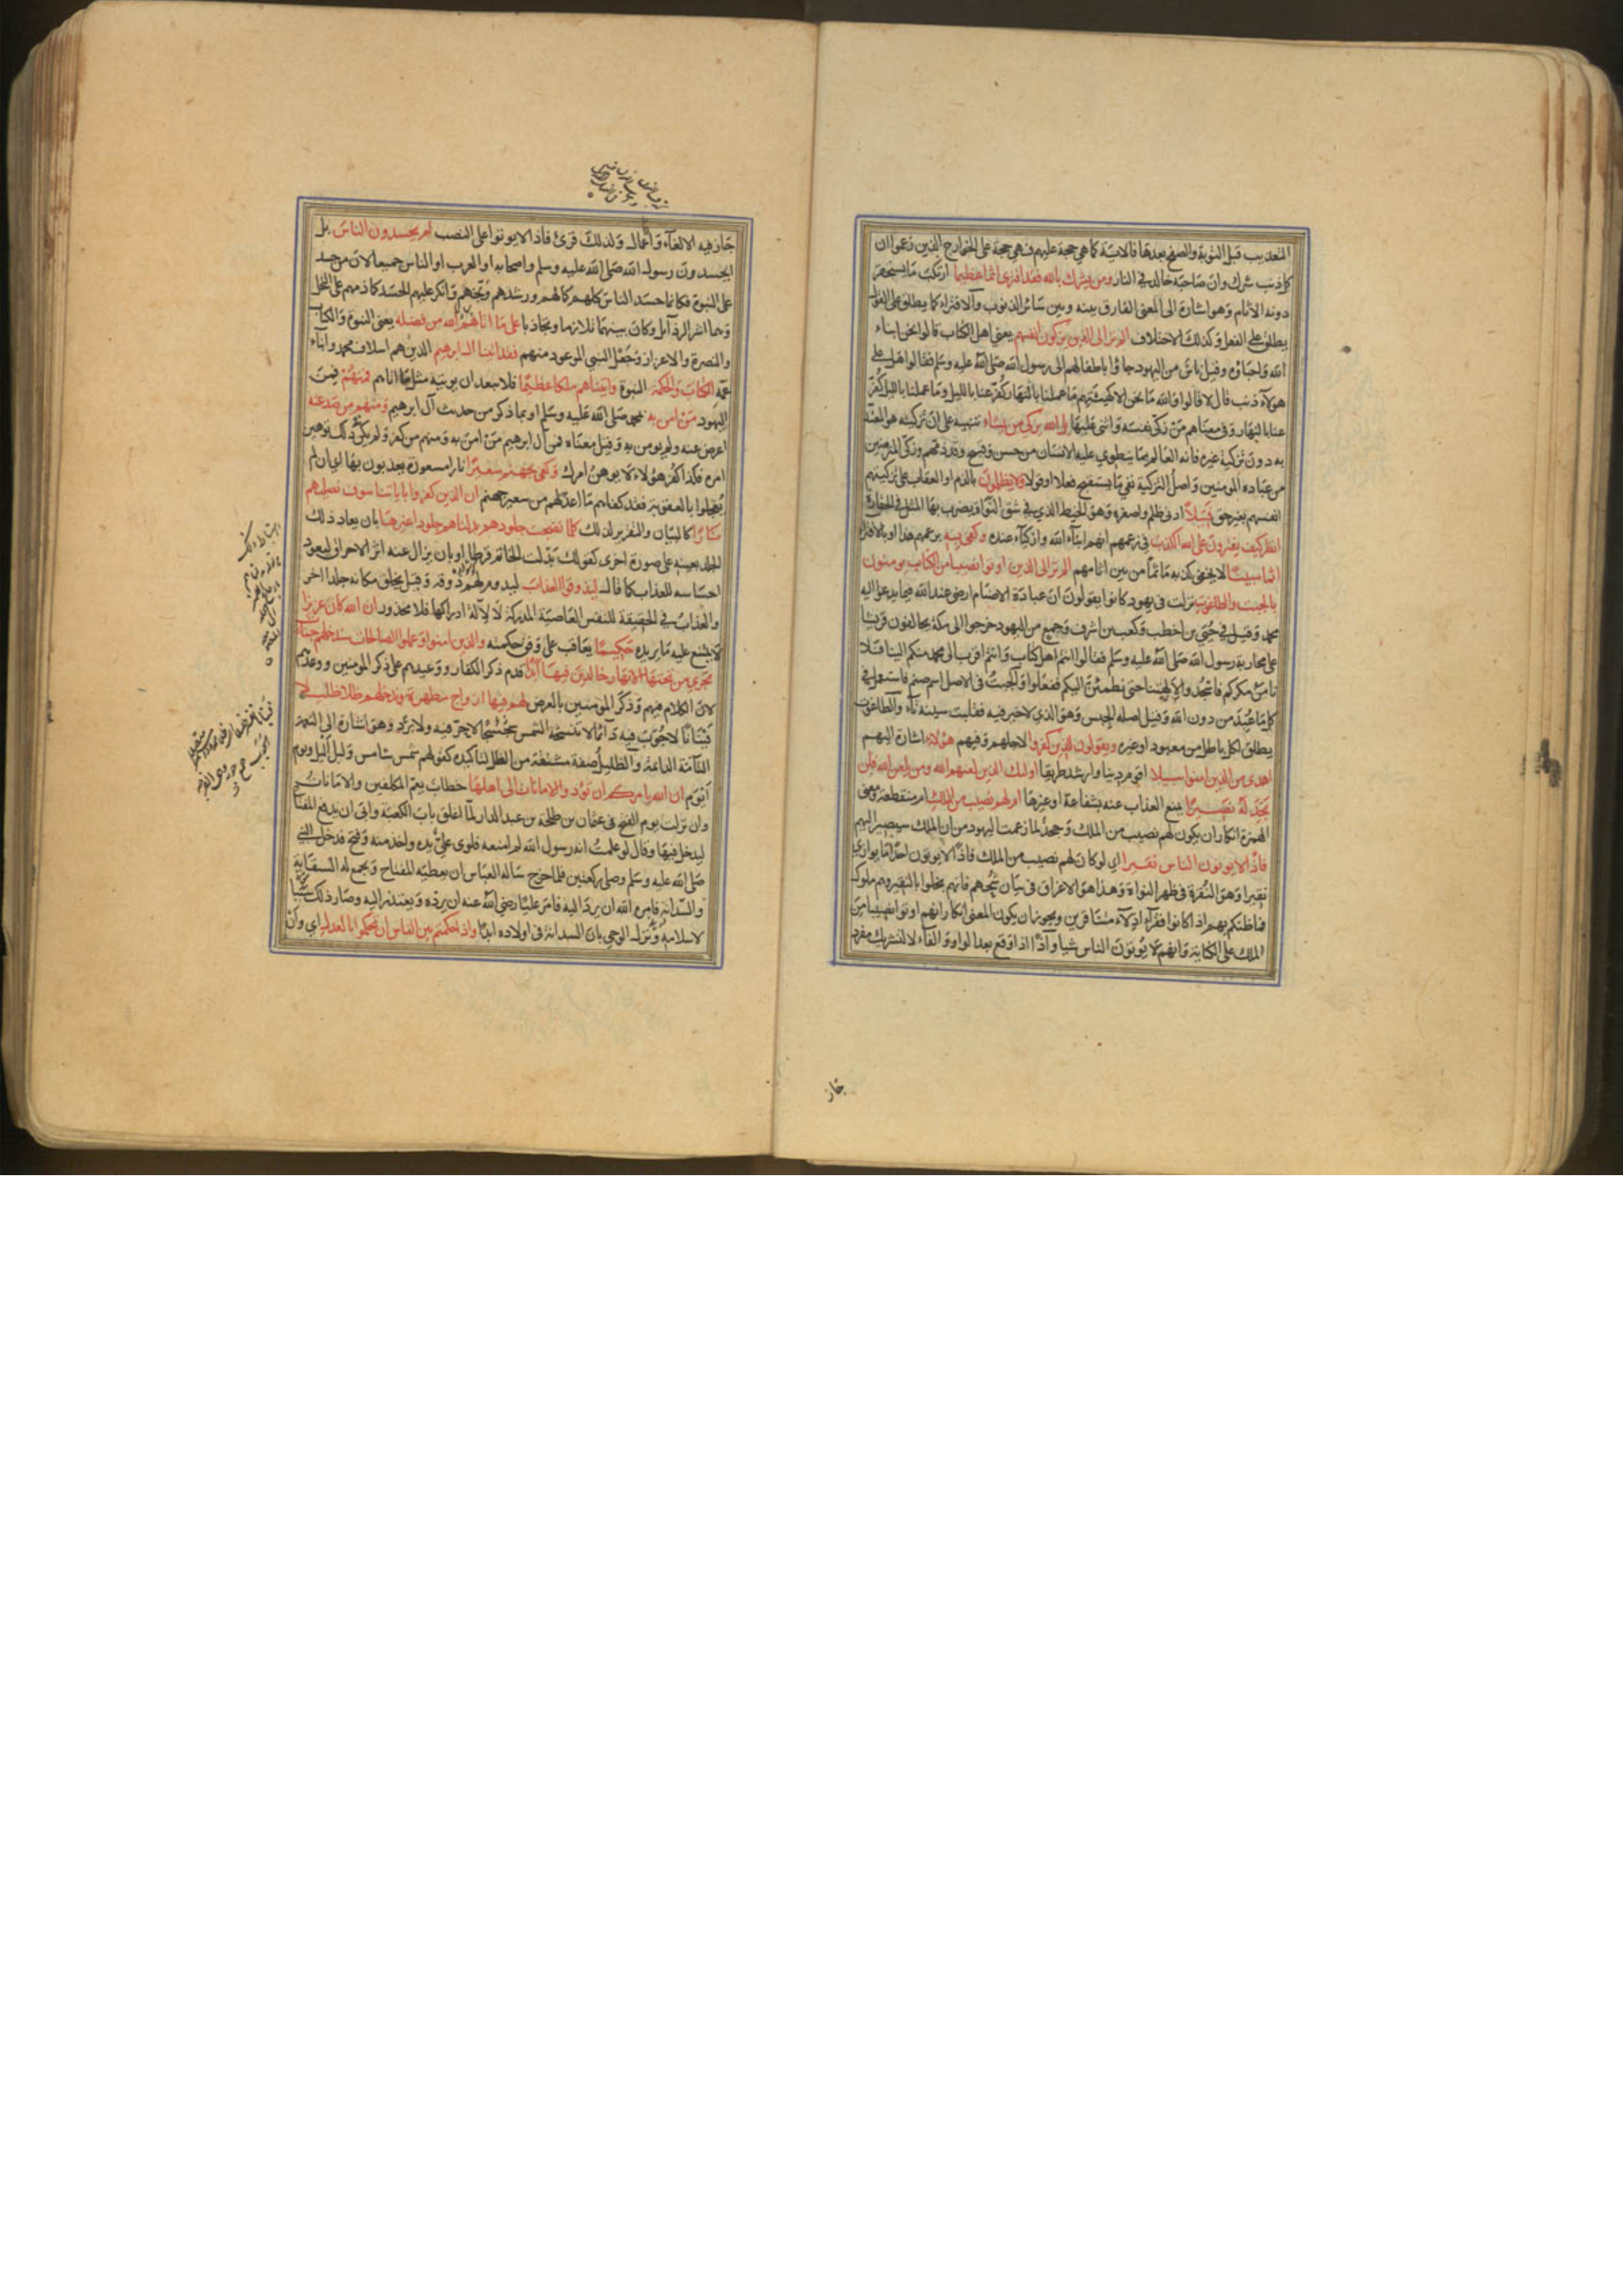 التعذيب قبل التوبة والصفح بعدها فالاية كما هي حجة عليهم فهي حجة على الخوارج الذين زعموا ان
كل ذنب شرك وان صاحبه خالد في النار ومن يشرك بالله فقد افترى اثما عظيما ارتكب ما يستحقر
دونه الاثام وهو اشارة الى المعنى الفارق بينه وبين سائر الذنوب والافتراء كما يطلق على القول
يطلق على الفعل وكذلك الاختلاف الم تر الى الذين يزكون انفسهم يعني اهل الكتاب قالوا نحن ابناء
الله واحباؤه وقيل ناس من اليهود جاؤا باطفالهم الى رسول الله صلى الله عليه وسلم فقالوا هل على
هولاء ذنب قال لا قالوا والله ما نحن الا كهيئتهم ما عملنا بالنهار كفر عنا بالليل وما عملنا بالليل كفر
عنا بالنهار وفي معناهم من زكى نفسه واثنى عليها بل الله يزكي من يشاء تنبيه على ان تزكيته هو المعتد
به دون تزكية غيره فانه العالم بما ينطوي عليه الانسان من حسن وقبيح وقد ذمهم وزكى المرتضين
من عباده المومنين واصل التزكية نفي ما يستقبح فعلا او قولا ولا يظلمون بالذم او العقاب على تزكيتهم
انفسهم بغير حق فتيلا ادنى ظلم واصغره وهو الخيط الذي في شق النواة يضرب به المثل في الحقارة
انظر كيف يفترون على الله الكذب في زعمهم انهم ابناء الله وازكياء عنده وكفى به بزعمهم هذا او بالافتراء
اثما مبينا لا يخفى كونه ماثما من بين اثامهم الم تر الى الذين اوتوا نصيبا من الكتاب يومنون
بالجبت والطاغوت نزلت في يهود كانوا يقولون ان عبادة الاصنام ارضى عند الله مما يدعو اليه
محمد وقيل في حيي بن اخطب وكعب بن اشرف وجمع من اليهود خرجوا الى مكة يحالفون قريشا
على محاربة رسول الله صلى الله عليه وسلم فقالوا انتم اهل كتاب وانتم اقرب الى محمد منكم الينا فلا
نامن مكركم فاسجدوا لالهتنا حتى نطمئن اليكم ففعلوا والجبت في الاصل اسم صنم فاستعمل في
كل ما عبد من دون الله وقيل اصله الجبس وهو الذي لا خير فيه فقلبت سينه تاء والطاغوت
يطلق لكل باطل من معبود او غيره ويقولون للذين كفروا لاجلهم وفيهم هؤلاء اشارة اليهم
اهدى من الذين امنوا سبيلا اقوم دينا وارشد طريقا اولئك الذين لعنهم الله ومن يلعن الله فلن
تجد له نصيرا يمنع العذاب عنه بشفاعة او غيرها ام لهم نصيب من الملك ام منقطعة ومعنى
الهمزة انكار ان يكون لهم نصيب من الملك وجحد لما زعمت اليهود من ان الملك سيصير اليهم
فاذا لا يوتون الناس نقيرا اي لو كان لهم نصيب من الملك فاذا لا يوتون احدا ما يوازي
نقيرا وهو النقرة في ظهر النواة وهذا هو الاغراق في بيان شحهم فانهم بخلوا بالنقير وهم ملوك
فما ظنكم بهم اذا كانوا فقراء اذلاء متفاقرين ويجوز ان يكون المعنى انكار انهم اوتوا نصيبا من
الملك على الكناية وانهم لا يوتون الناس شيا واذا اذا وقع بعد الواو والفاء لا لتشريك مفرد
جاز
جاز فيه الالغاء والاعمال ولذلك قرئ فاذا لا يوتوا على النصب ام يحسدون الناس بل
ايحسدون رسول الله صلى الله عليه وسلم واصحابه او العرب او الناس جميعا لان من حسد
على النبوة فكانما حسد الناس كلهم كمالهم ورشدهم وبخهم وانكر عليهم الحسد كما ذمهم على البخل
وهما اشر الرذائل وكان بينهما تلازما وتجاذبا على ما اتاهم الله من فضله يعني النبوة والكتاب
والنصرة والاعزاز وجعل النبي الموعود منهم فقد اتينا ال ابرهيم الذين هم اسلاف محمد وابناء
عمه الكتاب والحكمة النبوة واتيناهم ملكا عظيما فلا يبعد ان يوتيه مثل ما اتاهم فمنهم فمن
اليهود من امن به بمحمد صلى الله عليه وسلم او بما ذكر من حديث آل ابرهيم ومنهم من صد عنه
اعرض عنه ولم يومن به وقيل معناه فمن آل ابرهيم من امن به ومنهم من كفر ولم يكن ذلك توهين
امره فكذا كفر هؤلاء لا يوهن امرك وكفى بجهنم سعيرا نارا مسعورة يعذبون بها اي ان لم
يعجلوا بالعقوبة فقد كفاهم ما اعد لهم من سعير جهنم ان الذين كفروا باياتنا سوف نصليهم
نارا كالبيان والتقرير لذلك كلما نضجت جلودهم بدلناهم جلودا غيرها بان يعاد ذلك
الجلد بعينه على صورة اخرى كقولك بدلت الخاتم قرطا او بان يزال عنه اثر الاحراق ليعود
احساسه للعذاب كما قال ليذوقوا العذاب ليدوم لهم ذوقه وقيل يخلق مكانه جلدا اخر
والعذاب في الحقيقة للنفس العاصية المدركة لا لآلة ادراكها فلا محذور ان الله كان عزيزا
لا يمتنع عليه ما يريده حكيما يعاقب على وفق حكمته والذين امنوا وعملوا الصالحات سندخلهم جنات
تجري من تحتها الانهار خالدين فيها ابدا قدم ذكر الكفار ووعيدهم على ذكر المومنين ووعدهم
لان الكلام فيهم وذكر المومنين بالعرض لهم فيها ازواج مطهرة وندخلهم ظلا ظليلا
فينانا لا جوب فيه دائما لا تنسخه الشمس سجسجا لا حر فيه ولا برد وهو اشارة الى النعمة
التامة الدائمة والظليل صفة مشتقة من الظل لتاكيده كقولهم شمس شامس وليل اليل ويوم
ايوم ان الله يامركم ان تؤدوا الامانات الى اهلها خطاب يعم المكلفين والامانات
وان نزلت يوم الفتح في عثمان بن طلحة بن عبد الدار لما اغلق باب الكعبة وابى ان يدفع المفتاح
ليدخل فيها وقال لو علمت انه رسول الله لم امنعه فلوى علي يده واخذ منه وفتح فدخل النبي
صلى الله عليه وسلم وصلى ركعتين فلما خرج ساله العباس ان يعطيه المفتاح ويجمع له السقاية
والسدانة فامره الله ان يرد اليه فامر عليا رضي الله عنه ان يرده ويعتذر اليه وصار ذلك سببا
لاسلامه ونزل الوحي بان السدانة في اولاده ابدا واذا حكمتم بين الناس ان تحكموا بالعدل اي وان